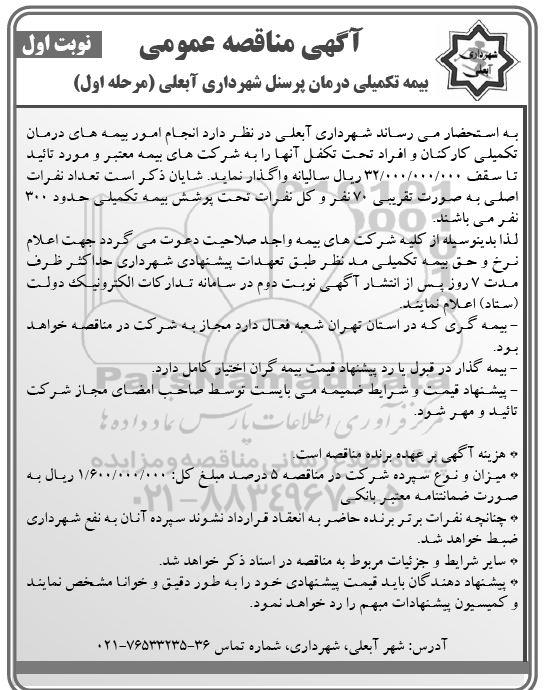 نوبت اول
آگهی مناقصه عمومی
شهرداری
آبعلی
بیمه تکمیلی درمان پرسنل شهرداری آبعلی (مرحله اول)
به استحضار می رساند شهرداری آبعلی در نظر دارد انجام امور بیمه های درمان
تکمیلی کارکنان و افراد تحت تکفل آنها را به شرکت های بیمه معتبر و مورد تائید
تا سقف ۳۲/۰۰۰/۰۰۰/۰۰۰ ریال سالیانه واگذار نماید. شایان ذکر است تعداد نفرات
اصلی به صورت تقریبی ۷۰ نفر و کل نفرات تحت پوشش بیمه تکمیلی حدود ۳۰۰
نفر می باشند.
لذا بدینوسیله از کلیه شرکت های بیمه واجد صلاحیت دعوت می گردد جهت اعلام
نرخ و حق بیمه تکمیلی مد نظر طبق تعهدات پیشنهادی شهرداری حداکثر ظرف
مدت ۷ روز پس از انتشار آگهی نوبت دوم در سامانه تدارکات الکترونیک دولت
(ستاد) اعلام نمایند.
- بیمه گری که در استان تهران شعبه فعال دارد مجاز به شرکت در مناقصه خواهد
بود.
- بیمه گذار در قبول یا رد پیشنهاد قیمت بیمه گران اختیار کامل دارد.
- پیشنهاد قیمت و شرایط ضمیمه می بایست توسط صاحب امضای مجاز شرکت
تائید و مهر شود.
* هزینه آگهی بر عهده برنده مناقصه است.
* میزان و نوع سپرده شرکت در مناقصه ۵ درصد مبلغ کل: ۱/۶۰۰/۰۰۰/۰۰۰ ریال به
صورت ضمانتنامه معتبر بانکی
* چنانچه نفرات برتر برنده حاضر به انعقاد قرارداد نشوند سپرده آنان به نفع شهرداری
ضبط خواهد شد.
* سایر شرایط و جزئیات مربوط به مناقصه در اسناد ذکر خواهد شد.
* پیشنهاد دهندگان باید قیمت پیشنهادی خود را به طور دقیق و خوانا مشخص نمایند
و کمیسیون پیشنهادات مبهم را رد خواهد نمود.
آدرس: شهر آبعلی، شهرداری، شماره تماس ۳۶-۷۶۵۳۳۲۳۵-۰۲۱
ParsNamadData
مرکز فرآوری اطلاعات پارس نماد داده ها
پایگاه اطلاع رسانی مناقصه و مزایده
۰۲۱-۸۸۳۴۹۶۷۰-۵